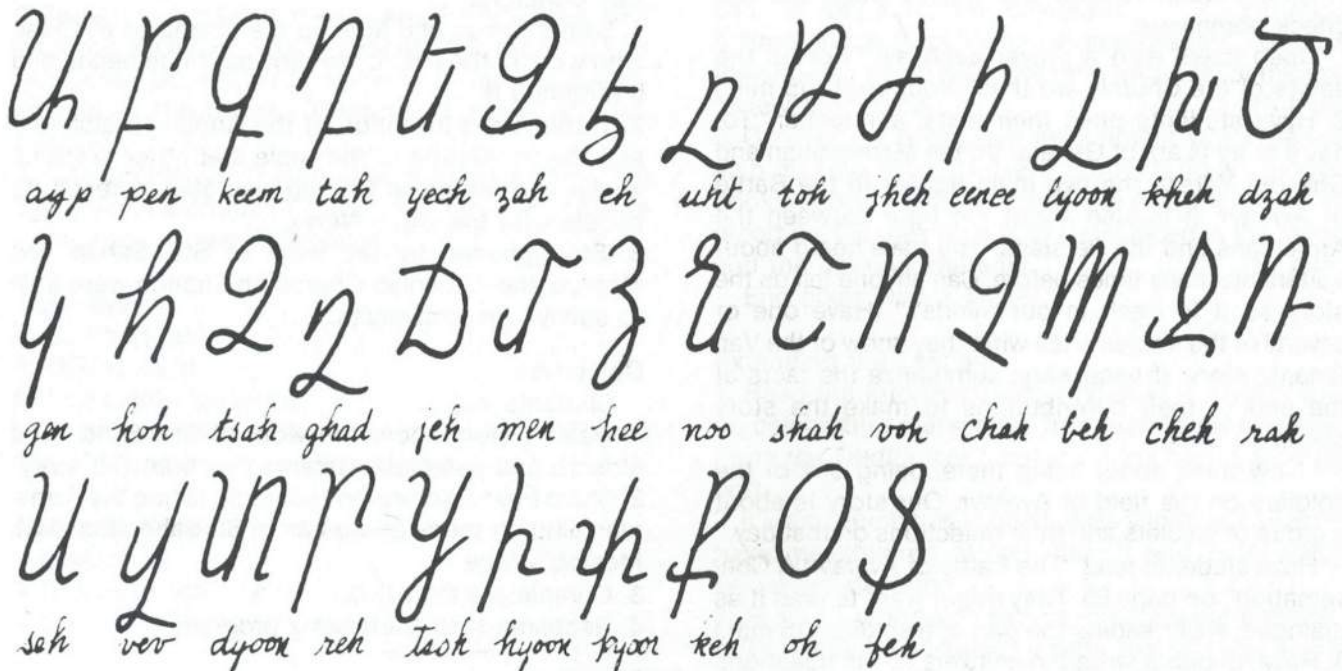 Ա Բ Գ Դ Ե Զ Է Ը Թ Ժ Ի Լ Խ Ծ
ayp pen keem tah yech zah eh uht toh jheh eenee lyoon kheh dzah
Կ Հ Ձ Ղ Ճ Մ Յ Ն Շ Ո Չ Պ Ջ Ռ
gen hoh tsah ghad jeh men hee noo shah voh chah beh cheh rah
Ս Վ Տ Ր Ց Ւ Փ Ք Օ Ֆ
seh vev dyoon reh tsoh hyoon pyoor keh oh feh